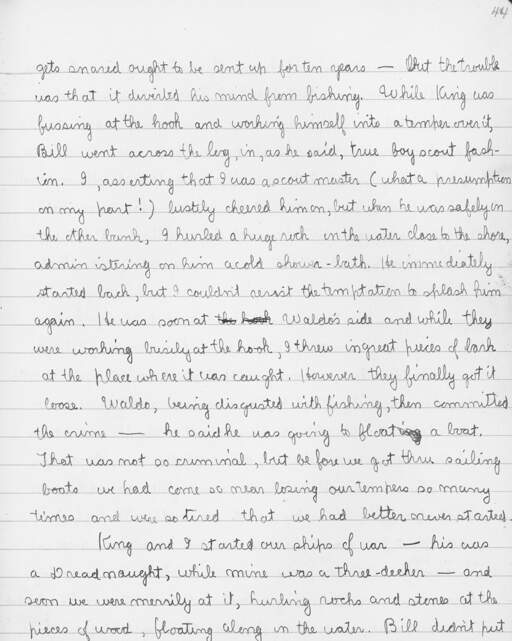 44
gets snared ought to be sent up for ten years — But the trouble
was that it diverted his mind from fishing. While King was
fussing at the hook and working himself into a temper over it,
Bill went across the log, in, as he said, true boy scout fash-
ion. I, asserting that I was a scout master (what a presumption
on my part!) lustily cheered him on, but when he was safely on
the other bank, I hurled a huge rock in the water close to the shore,
administering on him a cold shower-bath. He immediately
started back, but I couldn't resist the temptation to splash him
again. He was soon at the hook Waldo's side and while they
were working busily at the hook, I threw in great pieces of bark
at the place where it was caught. However they finally got it
loose. Waldo, being disgusted with fishing, then committed
the crime — he said he was going to float a boat.
That was not so criminal, but before we got thru sailing
boats we had come so near losing our tempers so many
times and were so tired that we had better never started.
King and I started our ships of war — his was
a Dreadnaught, while mine was a three-decker — and
soon we were merrily at it, hurling rocks and stones at the
pieces of wood, floating along in the water. Bill didn't put